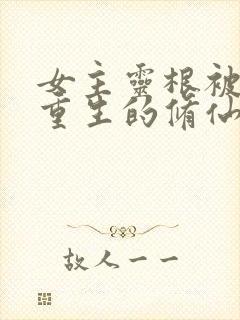 女主靈根被
重生的脩仙
故人一一